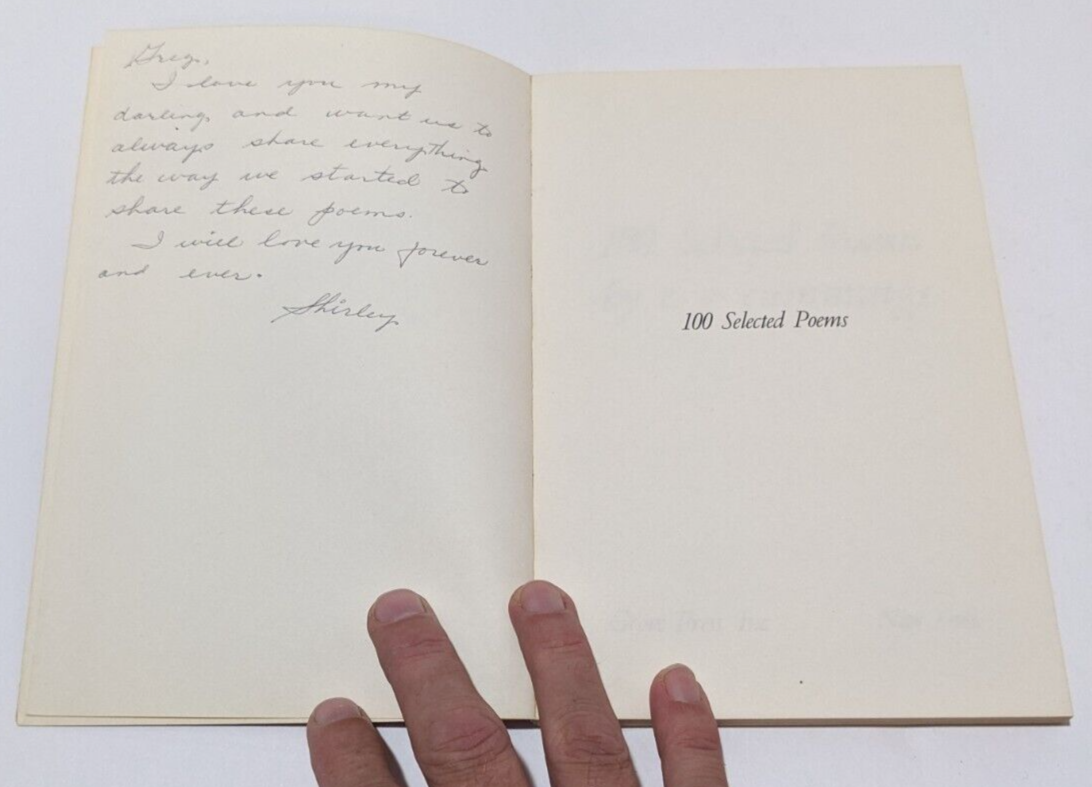 Greg,
I love you my
darling, and want us to
always share everything
the way we started to
share these poems.
I will love you forever
and ever.
Shirley
100 Selected Poems